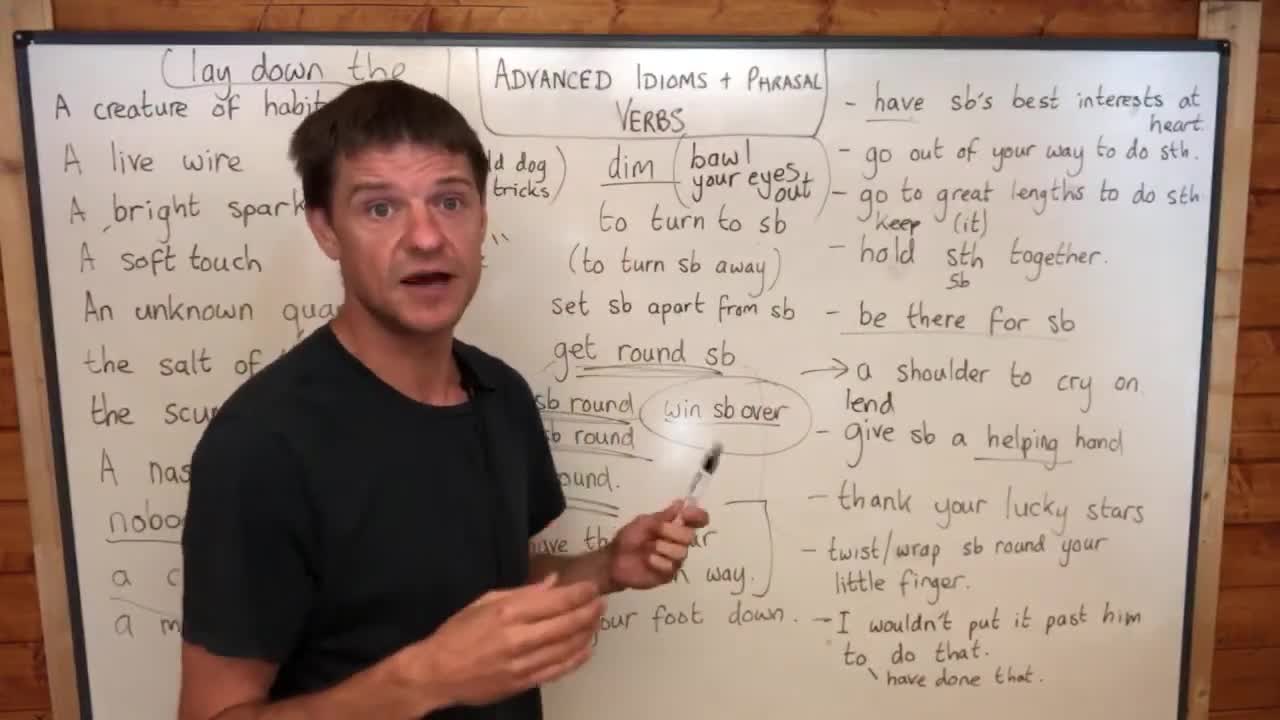 lay down the
A creature of habit
A live wire
A bright spark
A soft touch
An unknown
the salt of
the
A
a
a
ADVANCED IDIOMS + PHRASAL
VERBS
dog
tricks)
dim (bawl
your eyes
out)
to turn to sb
(to turn sb away)
set sb apart from sb
get round sb
sb round
win sb over
sb round
way.
foot down.
- have sb's best interests at
heart.
- go out of your way to do sth.
- go to great lengths to do sth
keep (it)
- hold sth together.
sb
- be there for sb
→ a shoulder to cry on
lend
- give sb a helping hand
- thank your lucky stars
- twist/wrap sb round your
little finger.
- I wouldn't put it past him
to do that.
\ have done that.